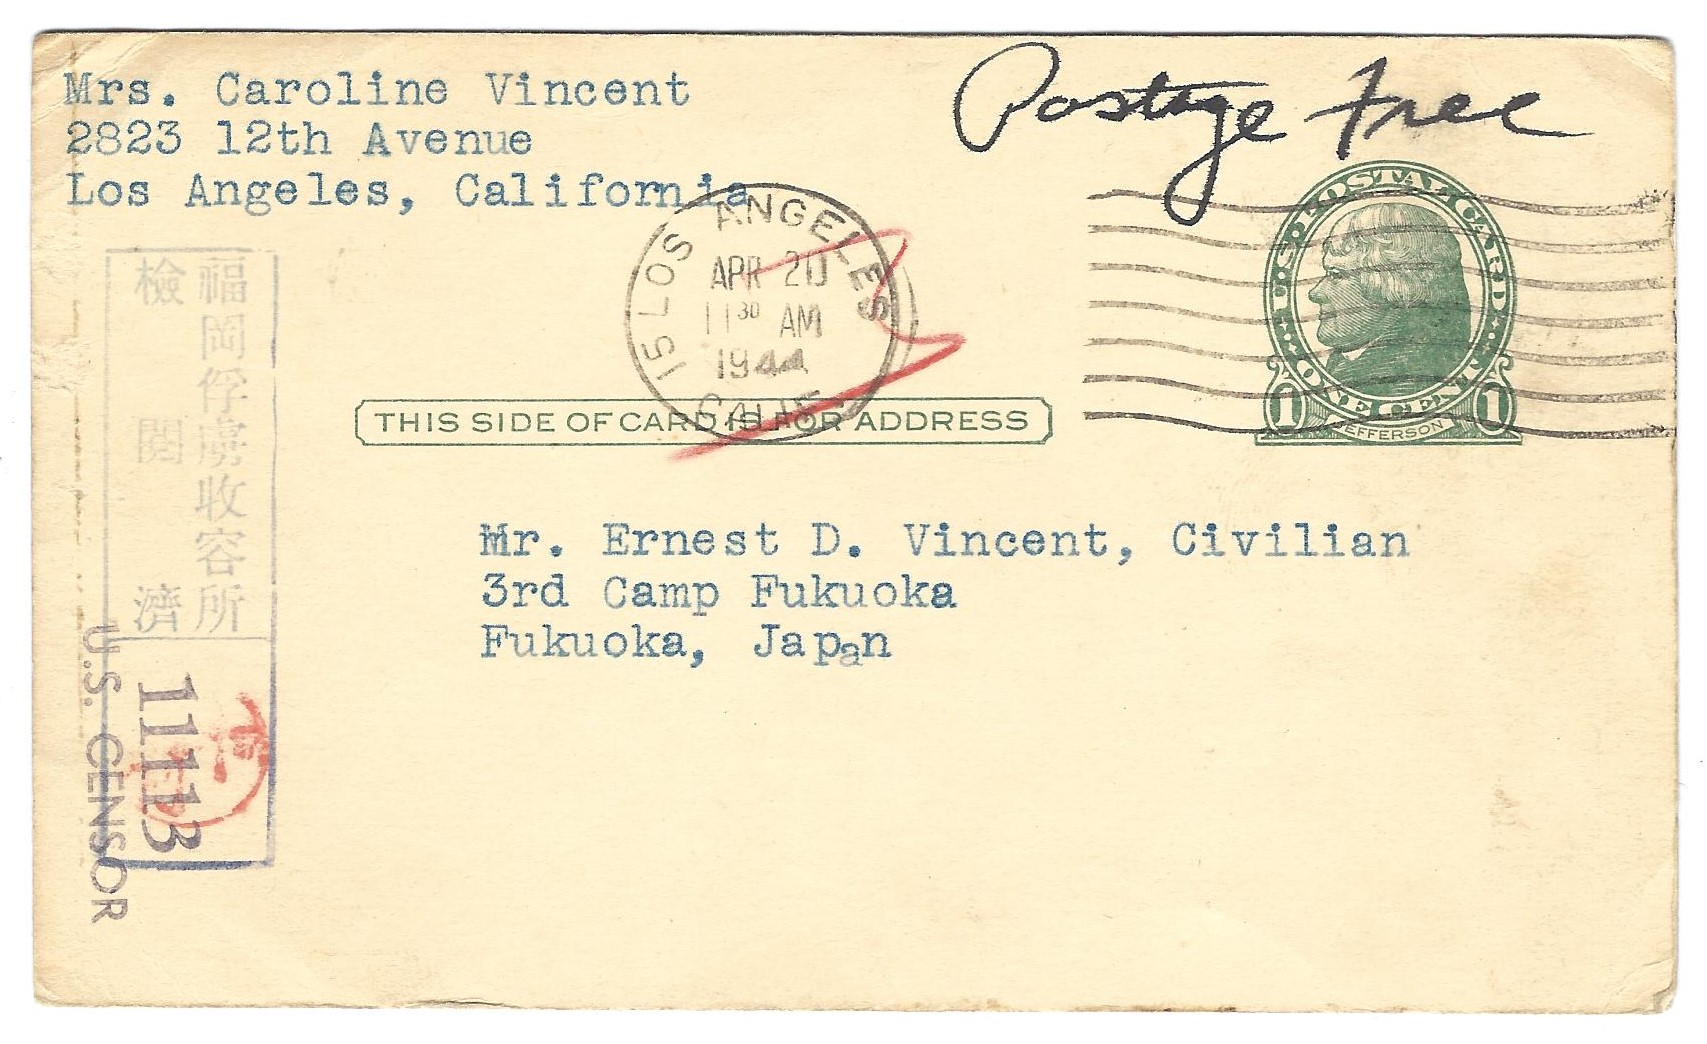 Mrs. Caroline Vincent
2823 12th Avenue
Los Angeles, California
Postage Free
LOS ANGELES
15
APR 20
11 30 AM
1944
CALIF.
U.S. POSTAL CARD
ONE CENT
1 JEFFERSON 1
THIS SIDE OF CARD IS FOR ADDRESS
Mr. Ernest D. Vincent, Civilian
3rd Camp Fukuoka
Fukuoka, Japan
福岡俘虜收容所
檢閲濟
11113
U.S. CENSOR